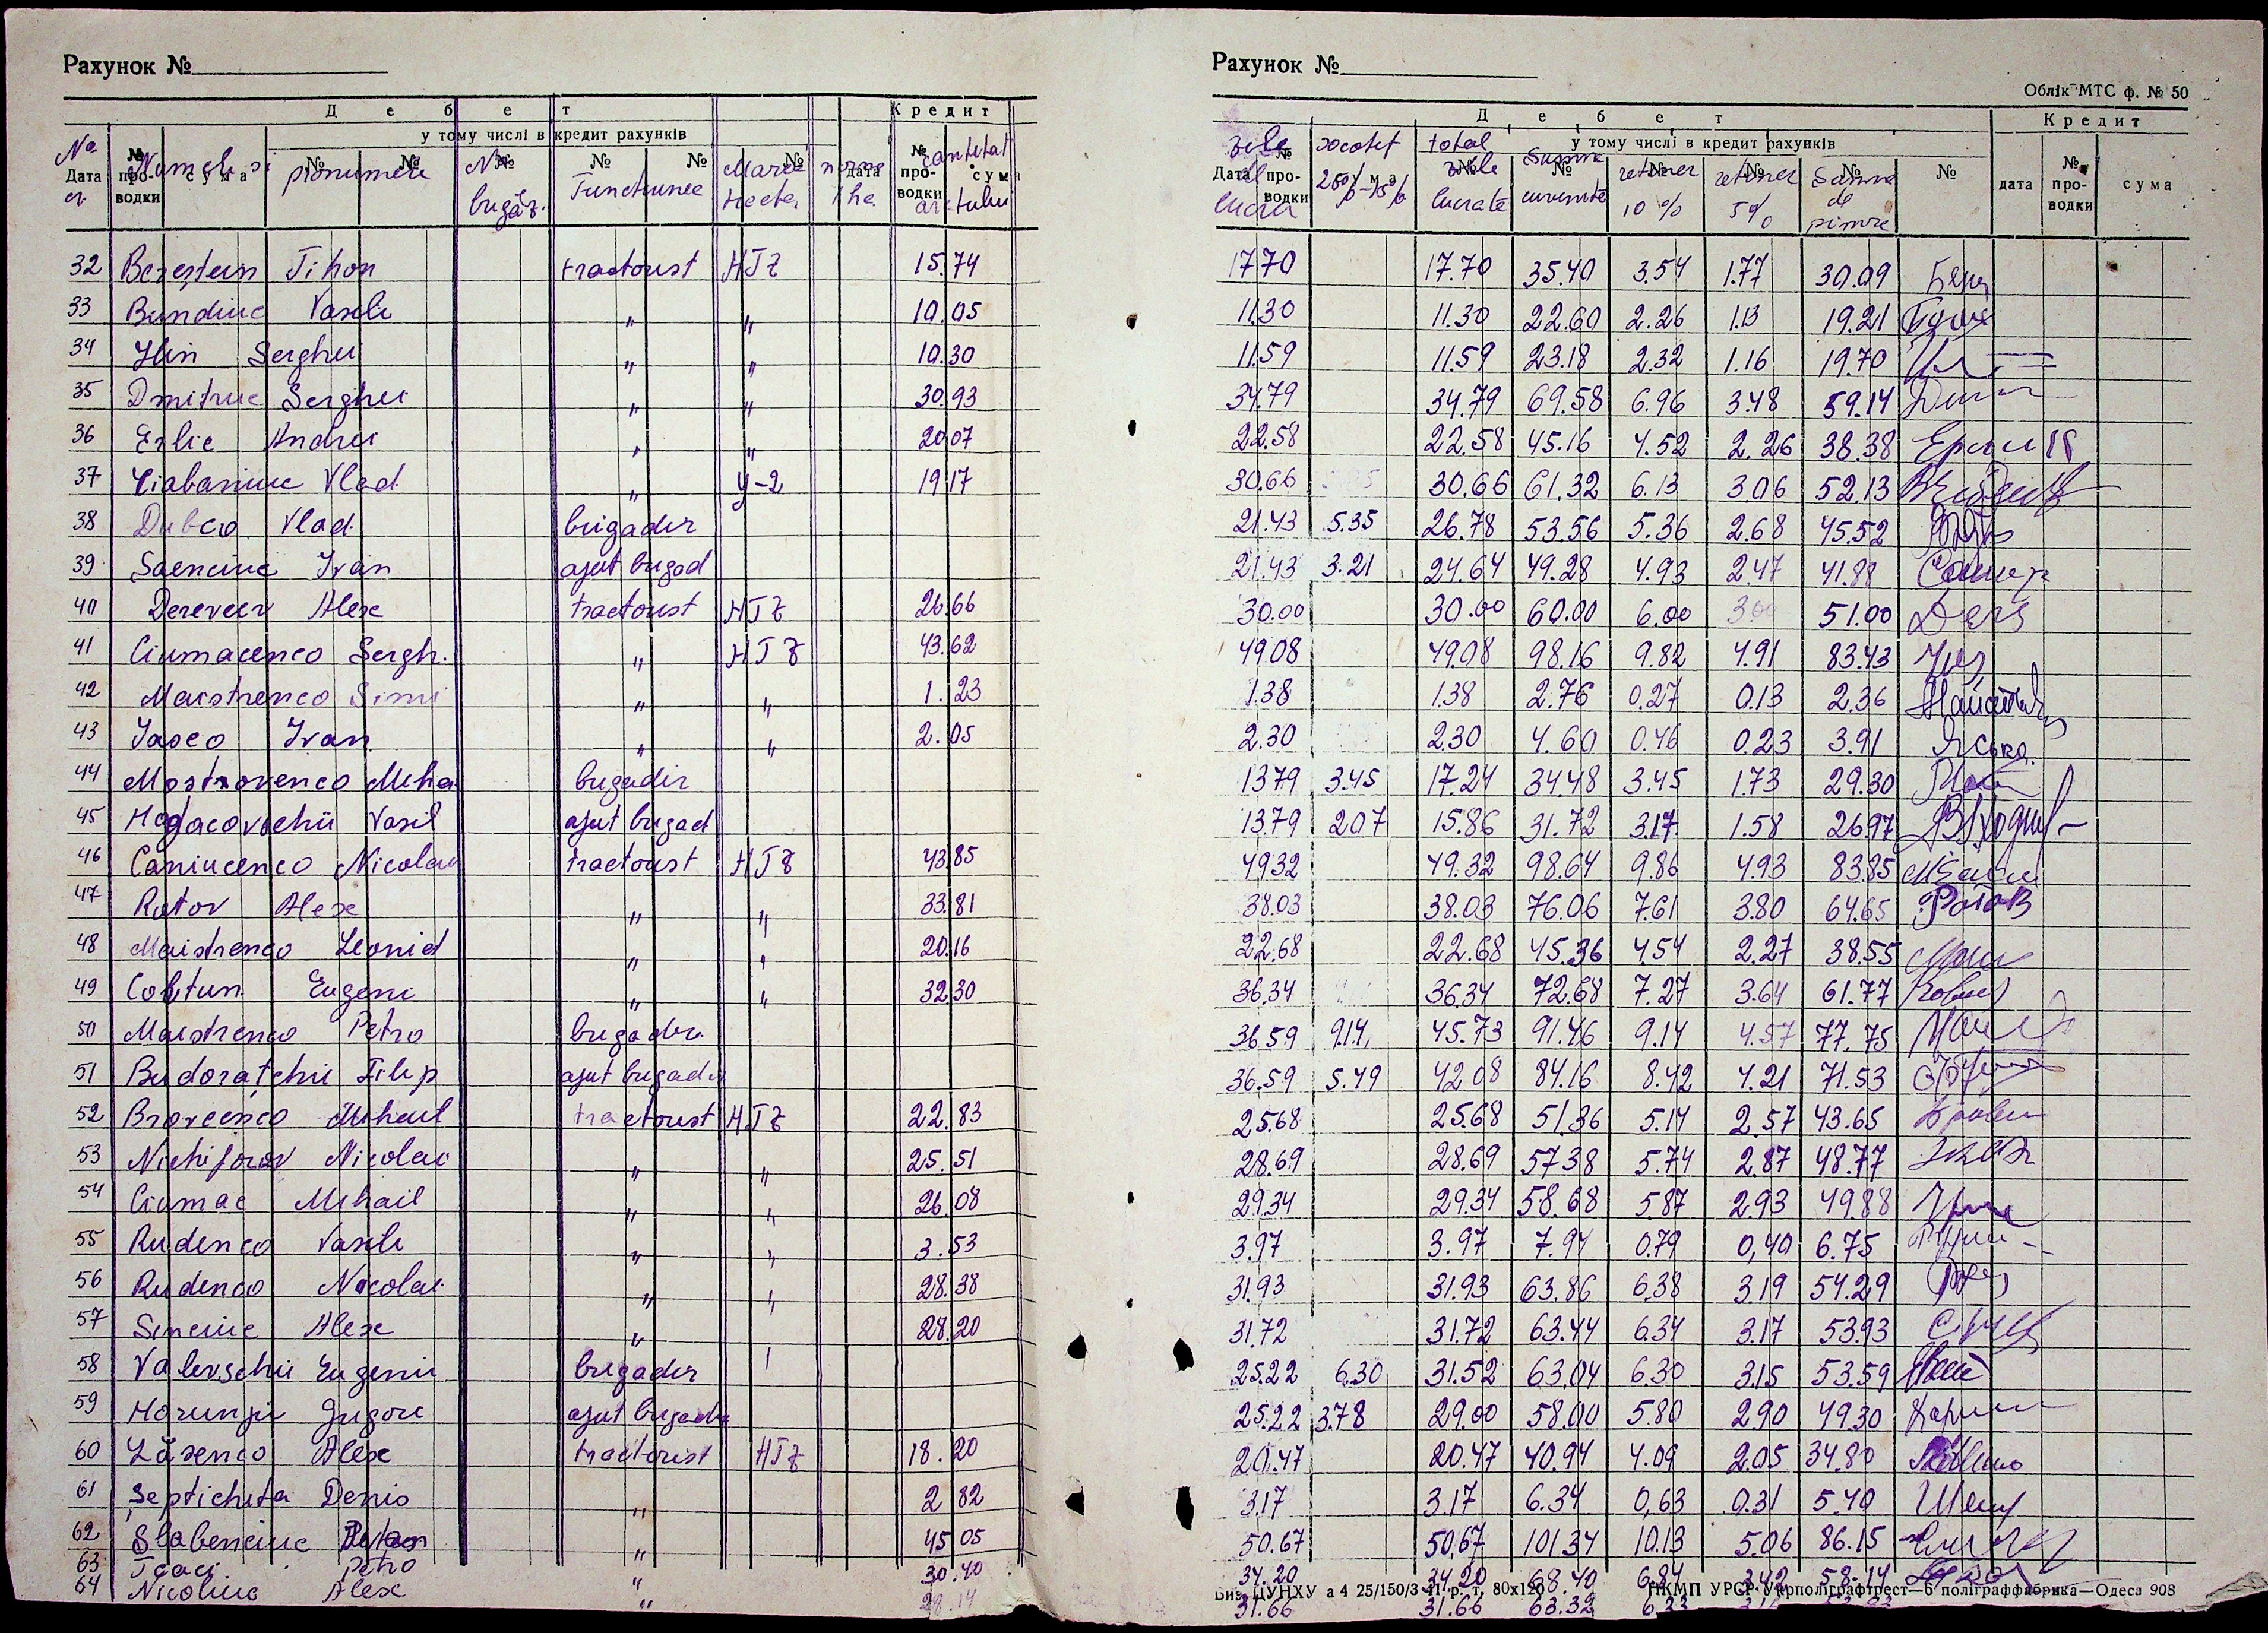 Рахунок №
Рахунок №
Облік МТС ф. № 50
Д е б е т Кредит
Д е б е т Кредит
у тому числі в кредит рахунків
у тому числі в кредит рахунків
№ Дата № проводки сума № № № № № № дата № проводки сума
Дата № проводки сума № № № № № № дата № проводки сума
No. Numele si pronumele No. brigăz. Functiunea Marca tracto. norma ha cantitat arătului
zile de lucru socotit 25% - 15% total zile lucrate Suma cuvenită retiner 10% retiner 5% Suma de primire
32 Bereștean Tihon tractorist HTZ 15.74 17.70 17.70 35.40 3.54 1.77 30.09
33 Bundiuc Vasile " " 10.05 11.30 11.30 22.60 2.26 1.13 19.21
34 Ilin Serghei " " 10.30 11.59 11.59 23.18 2.32 1.16 19.70
35 Dmitriuc Serghei " " 30.93 34.79 34.79 69.58 6.96 3.48 59.14
36 Erlic Andrei " " 20.07 22.58 22.58 45.16 4.52 2.26 38.38
37 Ciabaniuc Vlad " У-2 19.17 30.66 30.66 61.32 6.13 3.06 52.13
38 Dubco Vlad brigadir 21.43 5.35 26.78 53.56 5.36 2.68 45.52
39 Saenciuc Ivan ajut brigad 21.43 3.21 24.64 49.28 4.93 2.47 41.88
40 Derevcer Alex tractorist HTZ 26.66 30.00 30.00 60.00 6.00 3.00 51.00 Ders
41 Ciumacenco Sergh. " HTZ 43.62 49.08 49.08 98.16 9.82 4.91 83.43
42 Maistrenco Simi " " 1.23 1.38 1.38 2.76 0.27 0.13 2.36
43 Iasco Ivan " " 2.05 2.30 2.30 4.60 0.46 0.23 3.91 Ясько
44 Mostrovenco Miha brigadir 13.79 3.45 17.24 34.48 3.45 1.73 29.30
45 Hodacovschii Vasil ajut brigad 13.79 2.07 15.86 31.72 3.17 1.58 26.97
46 Caniucenco Nicolai tractorist HTZ 43.85 49.32 49.32 98.64 9.86 4.93 83.85
47 Rotov Alex " " 33.81 38.03 38.03 76.06 7.61 3.80 64.65 Ротов
48 Maistrenco Leonid " " 20.16 22.68 22.68 45.36 4.54 2.27 38.55
49 Cobtun Eugeni " " 32.30 36.34 36.34 72.68 7.27 3.64 61.77
50 Maistrenco Petro brigadir 36.59 9.14 45.73 91.46 9.14 4.57 77.75
51 Budoratchii Filip ajut brigadir 36.59 5.49 42.08 84.16 8.42 4.21 71.53
52 Brovcenco Mihail tractorist HTZ 22.83 25.68 25.68 51.36 5.14 2.57 43.65
53 Nichiforov Nicolai " " 25.51 28.69 28.69 57.38 5.74 2.87 48.77
54 Ciumac Mihail " " 26.08 29.34 29.34 58.68 5.87 2.93 49.88
55 Rudenco Vasile " " 3.53 3.97 3.97 7.94 0.79 0,40 6.75
56 Rudenco Nicolai " " 28.38 31.93 31.93 63.86 6.38 3.19 54.29
57 Sinciuc Alex " 28.20 31.72 31.72 63.44 6.34 3.17 53.93
58 Valevschii Eugenii brigadir 25.22 6.30 31.52 63.04 6.30 3.15 53.59
59 Horunjii Grigore ajut brigadir 25.22 3.78 29.00 58.00 5.80 2.90 49.30
60 Lăsenco Alex tractorist HTZ 18.20 20.47 20.47 40.94 4.09 2.05 34.80
61 Șeptichita Denis " 2 82 3.17 3.17 6.34 0,63 0.31 5.40
62 Slabenciuc " 45 05 50.67 50,67 101.34 10.13 5.06 86.15
63 Tcaci Petro " 30.40 34.20 34.20 68.40 6.84 3.42 58.14
64 Nicoliuc Alex " 28.14 31.66 31.66 63.32 6.33
Виз. ЦУНХУ а 4 25/150/3 11 р. т. 80х120 НКМП УРСР Укрполіграфтрест—6 поліграффабрика—Одеса 908